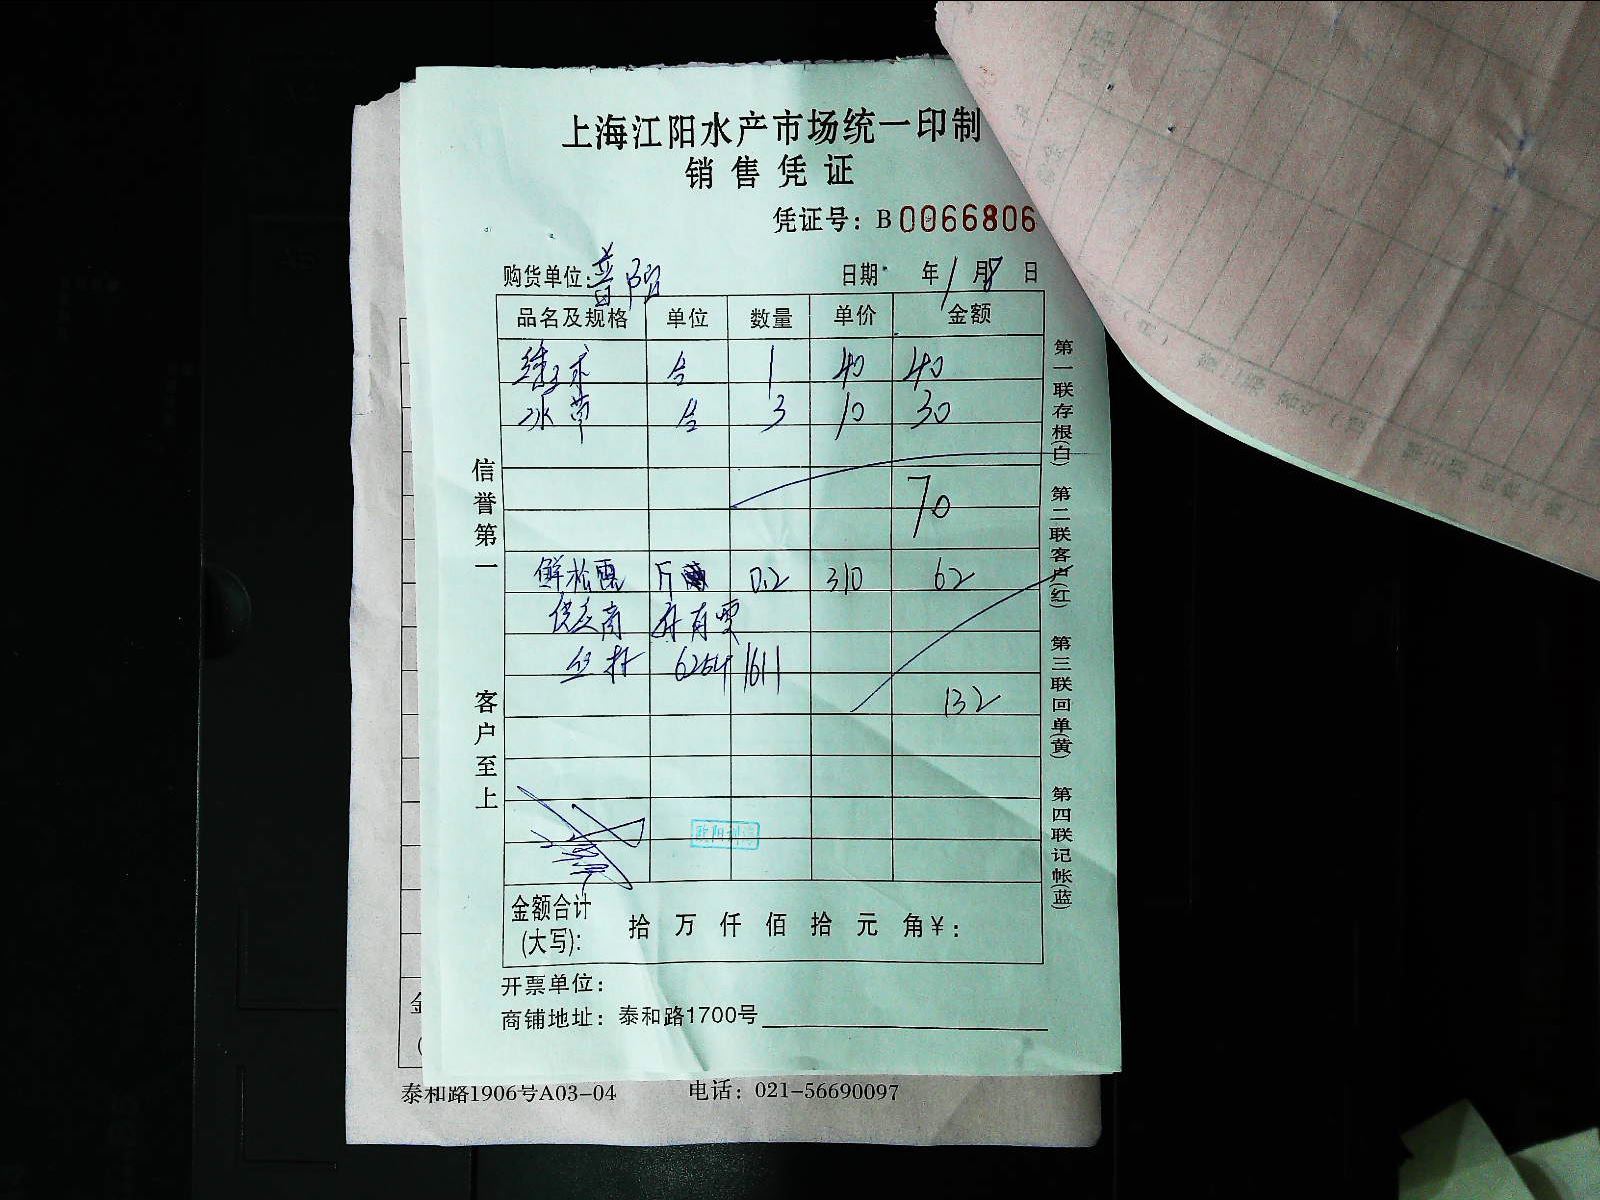 上海江阳水产市场统一印制
销售凭证
凭证号：B0066806
购货单位：普陀 日期 年1月8日
品名及规格 单位 数量 单价 金额
合 1 40 40
冰草 合 3 10 30
70
鲜松露 斤 0.2 310 62
供应商
62541611
132
信誉第一
客户至上
第一联存根(白) 第二联客户(红) 第三联回单(黄) 第四联记帐(蓝)
金额合计
(大写)： 拾 万 仟 佰 拾 元 角¥：
开票单位：
商铺地址：泰和路1700号
泰和路1906号A03-04 电话：021-56690097